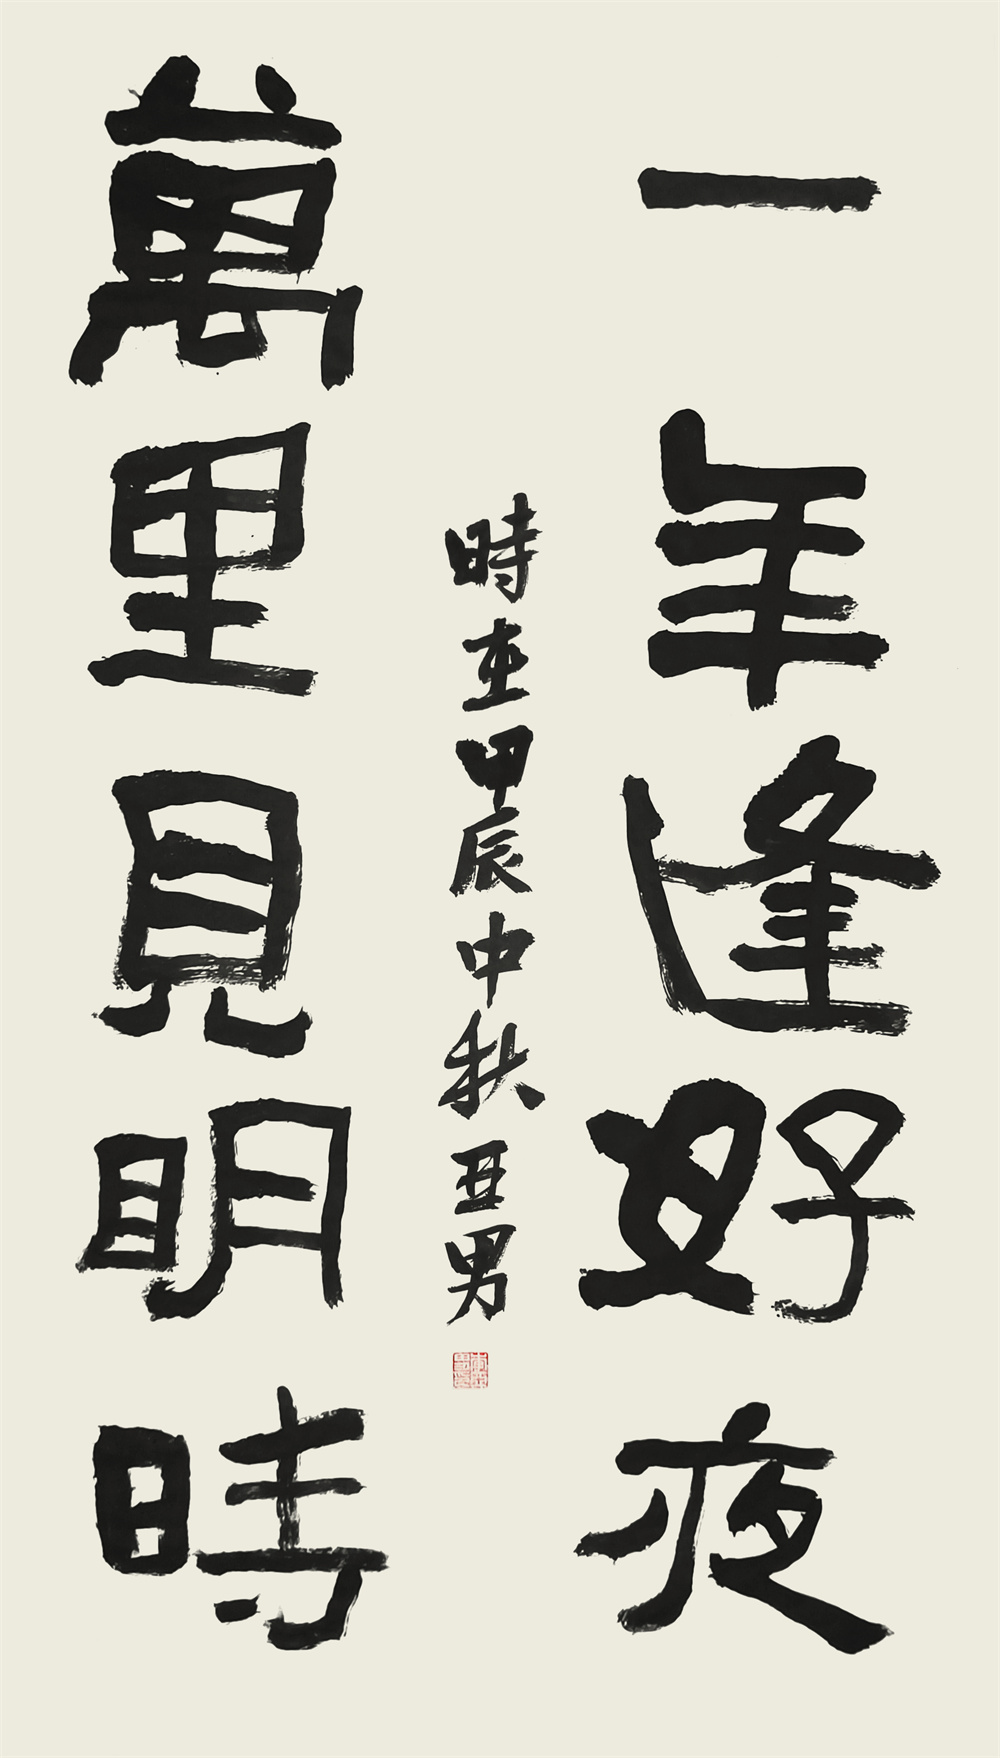 一年逢好夜
萬里見明時
時在甲辰中秋亚男